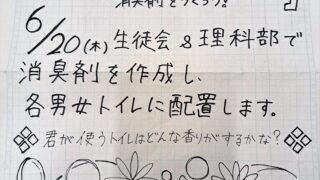 消臭剤をつくろう!!
6/20(木)生徒会&理科部で
消臭剤を作成し、
各男女トイレに配置します。
君が使うトイレはどんな香りがするかな?